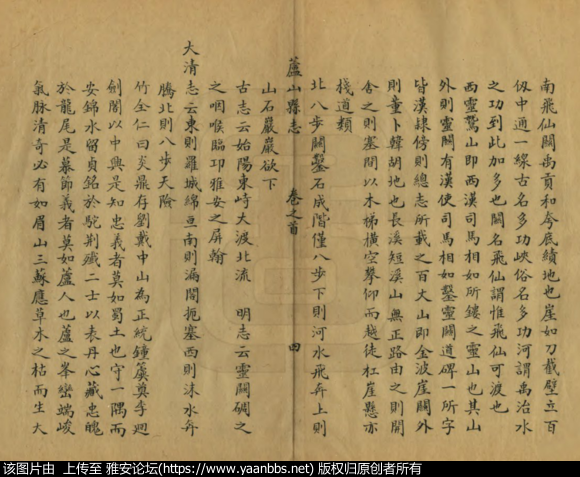 南飛仙關禹貢和夸底績地也崖如刀截壁立百
仭中通一線古名多功峽俗名多功河謂禹治水
之功到此加多也關名飛仙謂惟飛仙可渡也
西靈鷲山即西漢司馬相如所鏤之靈山也其山
外則靈關有漢使司馬相如鑿靈關道碑一所字
皆漢隸傍則總志所載之百大山即金波崖關外
則童卜韓胡地也長溪短溪山無正路由之則開
舍之則塞間以木梯橫空攀仰而越徒杠崖懸亦
棧道類
北八步關鑿石成階僅八步下則河水飛奔上則
蘆山縣志 卷之首 四
山石巖巖欲下
古志云始陽東峙大渡北流 明志云靈關碉之
之咽喉臨邛雅安之屏翰
大清志云東則羅城綿亘南則漏閣扼塞西則沫水奔
騰北則八步天險
竹全仁曰炎鼎存劉戴中山為正統鍾簴奠季迴
劍閣以中興是知忠義者莫如蜀土也守一隅而
安錦水留貞銘於駝荆殲二士以表丹心藏忠魄
於龍尾是慕節義者莫如蘆人也蘆之峯巒端峻
氣脉清奇必有如眉山三蘇應草木之枯而生大
该图片由 上传至 雅安论坛(https://www.yaanbbs.net) 版权归原创者所有